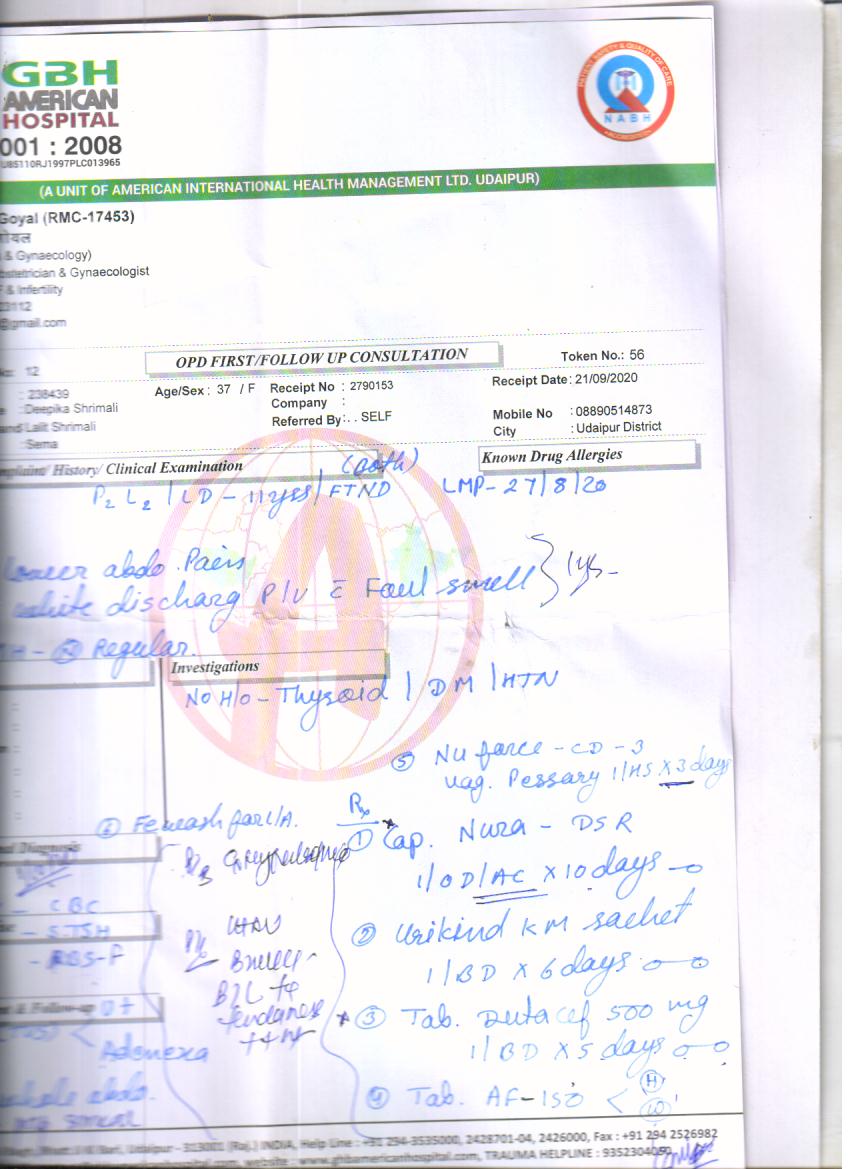 GBH
AMERICAN
HOSPITAL
001 : 2008
U85110RJ1997PLC013965
PATIENT SAFETY & QUALITY OF CARE
NABH
ACCREDITATION
(A UNIT OF AMERICAN INTERNATIONAL HEALTH MANAGEMENT LTD. UDAIPUR)
Goyal (RMC-17453)
गोयल
& Gynaecology)
Obstetrician & Gynaecologist
& Infertility
23112
@gmail.com
12
OPD FIRST/FOLLOW UP CONSULTATION
Token No.: 56
: 238439
Age/Sex : 37 / F
Receipt No : 2790153
Receipt Date: 21/09/2020
: Deepika Shrimali
Company :
Mobile No : 08890514873
Lalit Shrimali
Referred By : . . SELF
City : Udaipur District
:Sema
Complaint/ History/ Clinical Examination
Known Drug Allergies
(Both)
P2 L2 / LD - 11 yrs / FTND
LMP - 27/8/20
Lower abdo. Pain
white discharg P/V c̄ Foul smell } 1 yr
MH - (N) Regular.
Investigations
NO H/O - Thyroid / DM / HTN
⑤ Nu force - CD - 3
vag. Pessary 1/HS X 3 days
⑥ Fewash for L/A.
Rx
① Cap. Nura - DSR
1/OD/AC X 10 days
② Urikind KM sachet
1/BD X 6 days
③ Tab. Zutacef 500 mg
1/BD X 5 days
④ Tab. AF-150 < (H) (W)
Diagnosis
- CBC
- S.TSH
- RBS-F
P/V
B/L Fx
tenderness
++
& Follow-up
Adenexa
whole abdo.
smear
Udaipur - 313001 (Raj.) INDIA, Help Line : +91 294-3535000, 2428701-04, 2426000, Fax : +91 294 2526982
website : www.gbhamericanhospital.com, TRAUMA HELPLINE : 9352304050